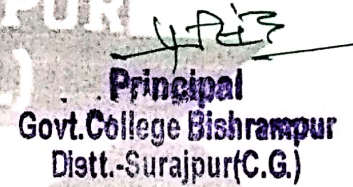 PURI
)
Principal
Govt.College Bishrampur
Distt.-Surajpur(C.G.)